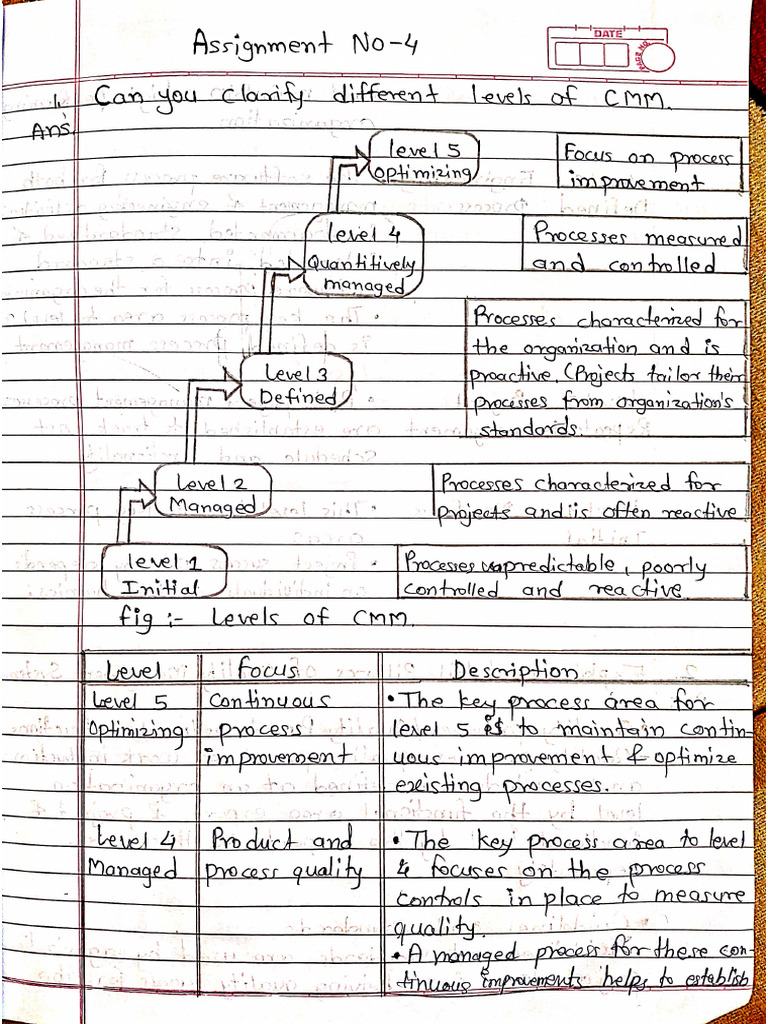 Assignment No-4
DATE
PAGE NO.
1. Can you clarify different levels of CMM.
Ans.
level 5
optimizing
Focus on process
improvement
level 4
Quantitively
managed
Processes measured
and controlled
Level 3
Defined
Processes characterized for
the organization and is
proactive. (Projects tailor their
processes from organization's
standards.
Level 2
Managed
Processes characterized for
projects and is often reactive
level 1
Initial
Processes unpredictable, poorly
controlled and reactive
fig :- Levels of CMM.
Level
focus
Description
Level 5
Optimizing
Continuous
process
improvement
• The key process area for
level 5 is to maintain contin-
uous improvement & optimize
existing processes.
Level 4
Managed
Product and
process quality
• The key process area to level
4 focuses on the process
controls in place to measure
quality.
• A managed process for these con-
tinuous improvements helps to establish